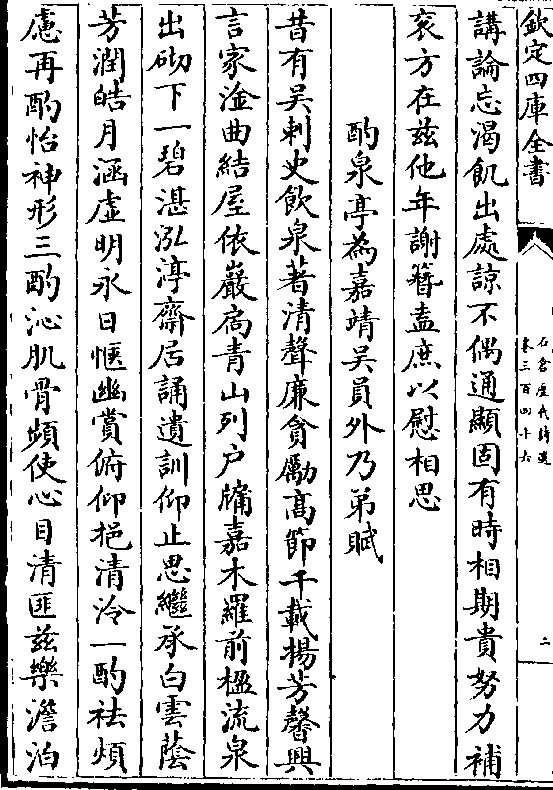 欽定四庫全書
石倉歷代詩選
卷三百四十六
二
講論忘渴飢出處諒不偶通顯固有時相期貴努力補
衮方在兹他年謝簪盍庶以慰相思
酌泉亭為嘉靖吳員外乃弟賦
昔有吳刺史飲泉著清聲廉貪勵髙節千載揚芳馨興
言家淦曲結屋依巖扃青山列户牖嘉木羅前楹流泉
出砌下一碧湛泓渟齋居誦遺訓仰止思繼承白雲蔭
芳潤皓月涵虚明永日愜幽賞俯仰挹清泠一酌祛煩
慮再酌怡神形三酌沁肌骨頻使心目清匪兹樂澹泊